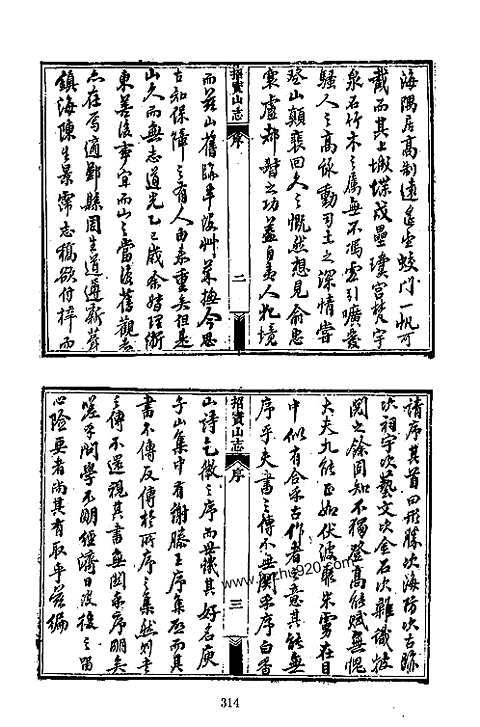 海隅居高制遠邑坐蛟門一帆可
截而其上墩堞戍壘瓊宮梵宇
泉石竹木之屬無不馮雲引曠發
騷人之高詠動司土之深情嘗
登山顛裴回久之慨然想見俞忠
襄盧都督之功益自
招寶山志
序
二
而茲山舊
古知保障之有人由來重矣但是
山久而無志道光乙巳歲余
東善後事宜而山之當復舊觀者
亦在焉適鄞縣周生道遵新葺
鎮海陳生景沛志稿欲付梓而
請序其首四形勝次海防次古蹟
次祠宇次藝文次金石次雜識披
閱之餘固知不獨登高能賦無愧
大夫九能正如伏波聚米
在目
中似有合於古作者之意其能無
序乎夫書之傳不無關乎序白香
招寶山志
序
三
山詩乞微之序而
其好名庾
子山集中有謝滕王序集啟而其
書不傳反傳於所序之集然則書
之傳不還視其書無關乎序明矣
嗟予問學不明經濟日
心險要者尚其有取乎茲編
www.shu920.com
314